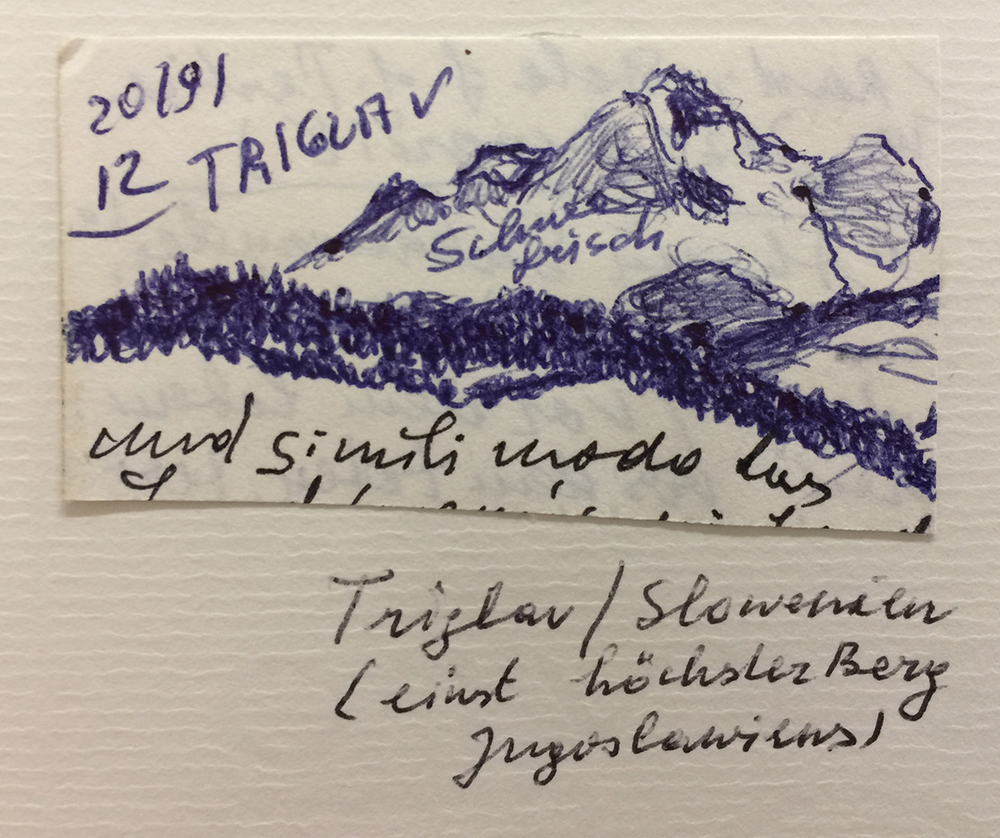 20/9/
12 TRIGLAV
Schnee
frisch
und simili modo
Triglav / Slowenien
(einst höchster Berg
Jugoslawiens)